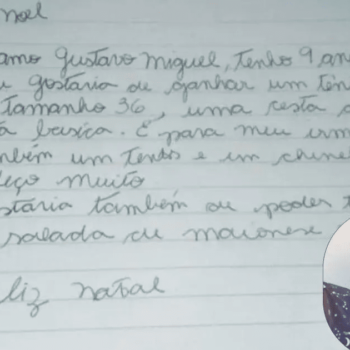 noel
amo Gustavo Miguel, tenho 9 an
u gostaria de ganhar um tên
tamanho 36, uma cesta d
a basica. E para meu irm
mbém um tenis e um chinel
eço muito
staria também ou poder t
salada de maionese
liz natal